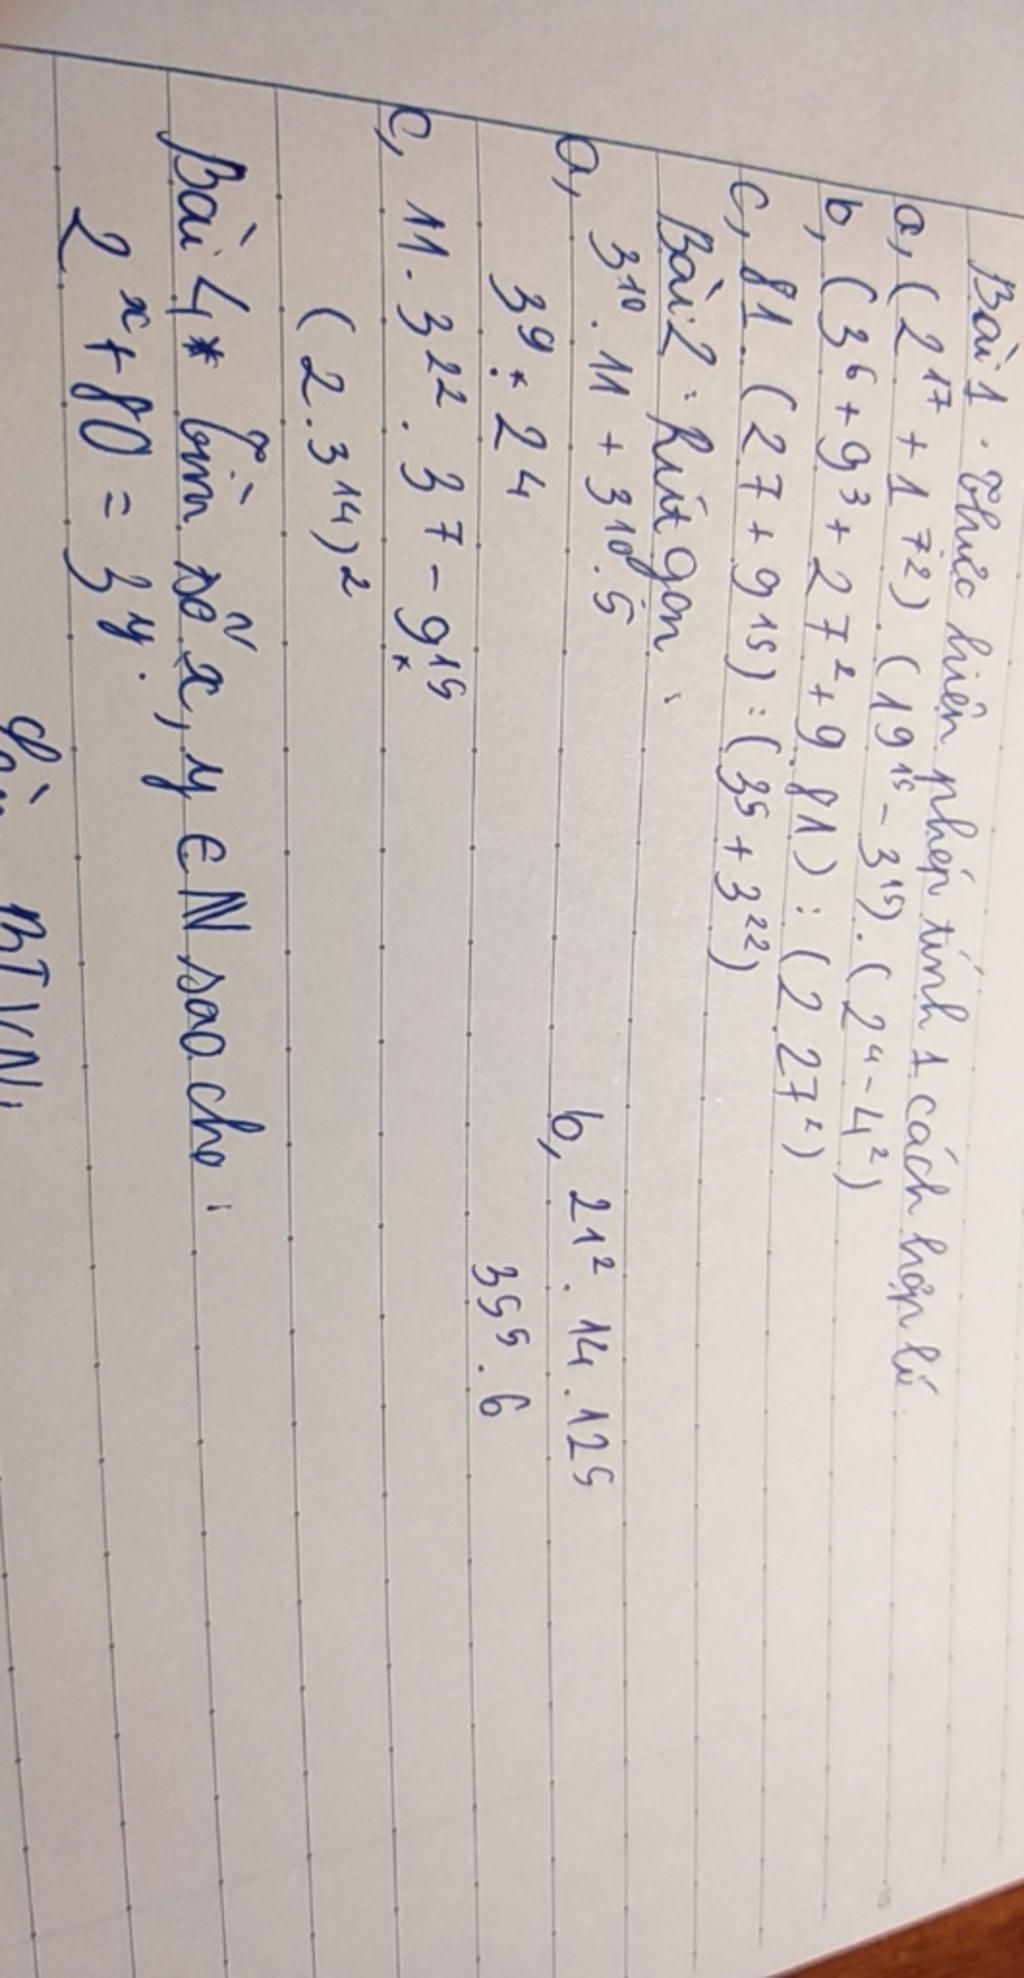 Bài 1. Thực hiện phép tính 1 cách hợp lí
a, (2¹⁷ + 17²). (19¹⁵ - 3¹⁵). (2⁴ - 4²)
b, (3⁶ + 9³ + 27² + 9.81) : (2.27²)
c, 81. (27 + 9¹⁵) : (3⁵ + 3²²)
Bài 2: Rút gọn:
a, 3¹⁰. 11 + 3¹⁰. 5 b, 21². 14. 125
3⁹. 24 35⁵. 6
c, 11. 3²². 3⁷ - 9¹⁵
(2.3¹⁴)²
Bài 4* tìm số x, y ∈ N sao cho:
2ˣ + 80 = 3ʸ.
BTVN: